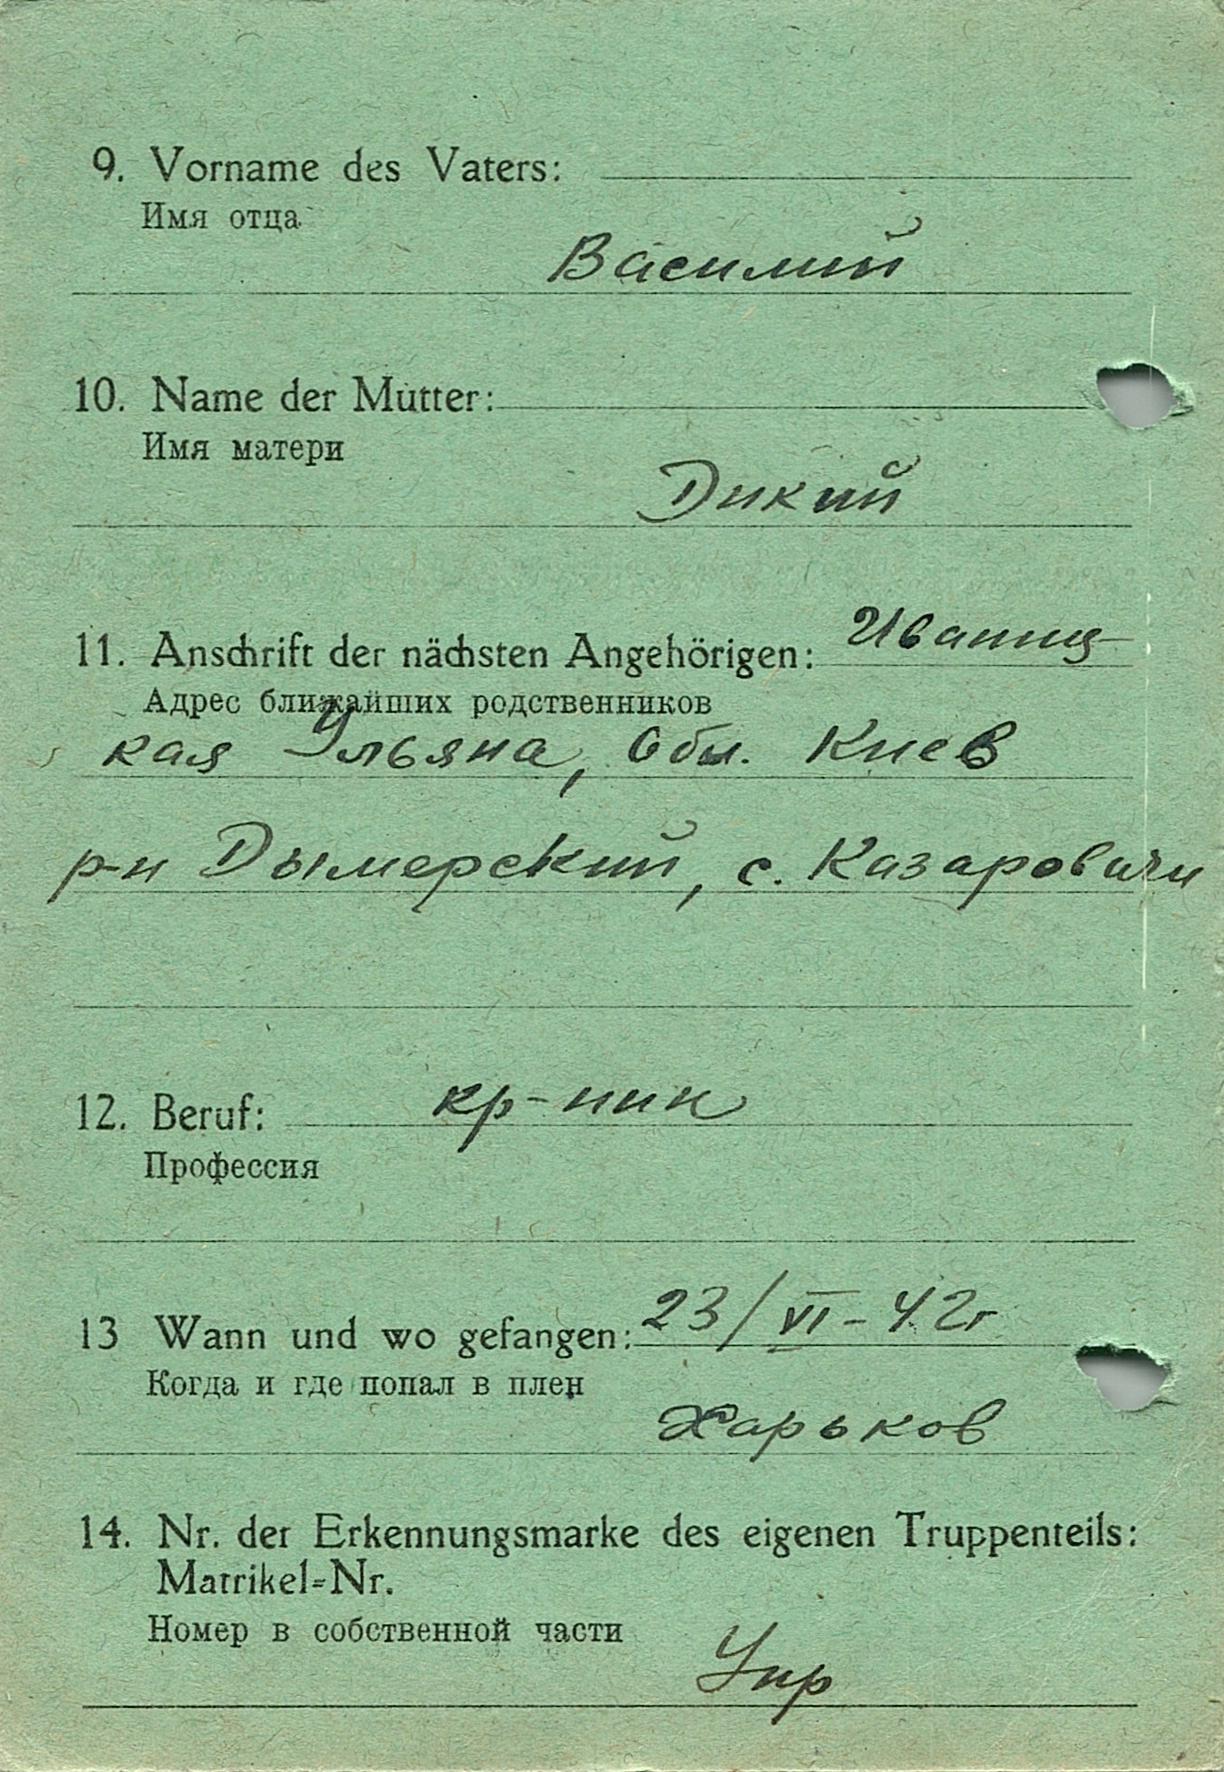 9. Vorname des Vaters:
Имя отца
Василий
10. Name der Mutter:
Имя матери
Дикий
11. Anschrift der nächsten Angehörigen: Иваниц-
Адрес ближайших родственников
кая Ульяна, Обл. Киев
р-н Дымерский, с. Казаровичи
12. Beruf: кр-нин
Профессия
13 Wann und wo gefangen: 23/VI-42г
Когда и где попал в плен
Харьков
14. Nr. der Erkennungsmarke des eigenen Truppenteils:
Matrikel-Nr.
Номер в собственной части
Укр